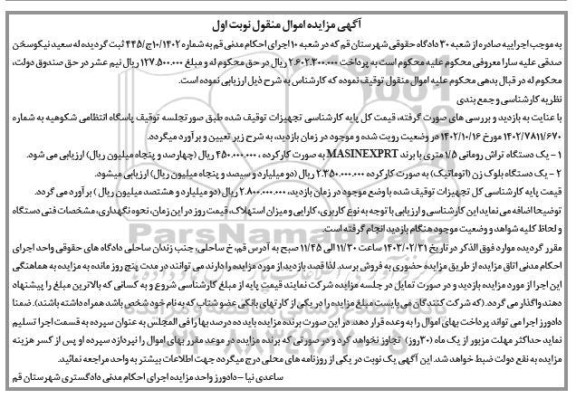 آگهی مزایده اموال منقول نوبت اول
به موجب اجراییه صادره از شعبه ۳۰ دادگاه حقوقی شهرستان قم که در شعبه ۱۰ اجرای احکام مدنی قم به شماره ۱۰/۱۴۰۲ج/۴۴۵ ثبت گردیده له سعید نیکوسخن
صدقی علیه سارا معروفی محکوم علیه محکوم است به پرداخت ۲.۶۰۲.۳۰۰.۰۰۰ ریال در حق محکوم له و مبلغ ۱۲۷.۵۰۰.۰۰۰ ریال نیم عشر در حق صندوق دولت،
محکوم له در قبال بدهی محکوم علیه اموال منقول توقیف نموده که کارشناس به شرح ذیل ارزیابی نموده است.
نظریه کارشناسی و جمع بندی
با عنایت به بازدید و بررسی های صورت گرفته، قیمت کل پایه کارشناسی تجهیزات توقیف شده طبق صورتجلسه توقیف پاسگاه انتظامی شکوهیه به شماره
۱۴۰۲/۷۸۱۱/۶۷۰ مورخ ۱۴۰۲/۱۰/۱۶ در وضعیت رویت شده و موجود در زمان بازدید، به شرح زیر تعیین و برآورد میگردد.
۱ - یک دستگاه تراش رومانی ۱/۵ متری با برند MASINEXPRT به صورت کارکرده ، ۴۵۰.۰۰۰.۰۰۰ ریال (چهارصد و پنجاه میلیون ریال) ارزیابی می شود.
۲ - یک دستگاه بلوک زن (اتوماتیک) به صورت کارکرده ۲.۳۵۰.۰۰۰.۰۰۰ ریال (دو میلیارد و سیصد و پنجاه میلیون ریال) ارزیابی میشود.
قیمت پایه کارشناسی کل تجهیزات توقیف شده با وضع موجود در زمان بازدید، ۲.۸۰۰.۰۰۰.۰۰۰ ریال (دو میلیارد و هشتصد میلیون ریال ) برآورد می گردد.
توضیحا اضافه می نماید این کارشناسی و ارزیابی با توجه به نوع کاربری، کارایی و میزان استهلاک، قیمت روز در این زمان، نحوه نگهداری، مشخصات فنی دستگاه
و لحاظ کلیه شواهد و وضعیت موجود هنگام بازدید انجام گرفته است.
مقرر گردیده موارد فوق الذکر در تاریخ ۱۴۰۳/۰۲/۳۱ ساعت ۱۱/۳۰ الی ۱۱/۴۵ صبح به آدرس قم، خ ساحلی، جنب زندان ساحلی دادگاه های حقوقی واحد اجرای
احکام مدنی اتاق مزایده از طریق مزایده حضوری به فروش برسد. لذا قصد بازدید از مورد مزایده را دارند می توانند در مدت پنج روز مانده به مزایده به هماهنگی
این اجرا از مورد مزایده بازدید و در صورت تمایل در جلسه مزایده شرکت نمایند قیمت پایه از مبلغ کارشناسی شروع و به کسانی که بالاترین مبلغ را پیشنهاد
دهند واگذار می گردد. (که شرکت کنندگان می بایست مبلغ مزایده را در یکی از کارتهای بانکی عضو شتاب که به نام خود شخص باشد همراه داشته باشند). ضمنا
دادورز اجرا می تواند پرداخت بهای اموال را به وعده قرار دهد، در این صورت برنده مزایده باید ده درصد بها را فی المجلس به عنوان سپرده به قسمت اجرا تسلیم
نماید حداکثر مهلت مزبور از یک ماه (۳۰ روز) تجاوز نخواهد کرد و در صورتی که برنده مزایده در موعد مقرر بهای اموال را نپردازد سپرده او پس از کسر هزینه
مزایده به نفع دولت ضبط خواهد شد. این آگهی یک نوبت در یکی از روزنامه های محلی درج میگردد جهت اطلاعات بیشتر به واحد مراجعه نمائید.
ساعدی نیا - دادورز واحد مزایده اجرای احکام مدنی دادگستری شهرستان قم